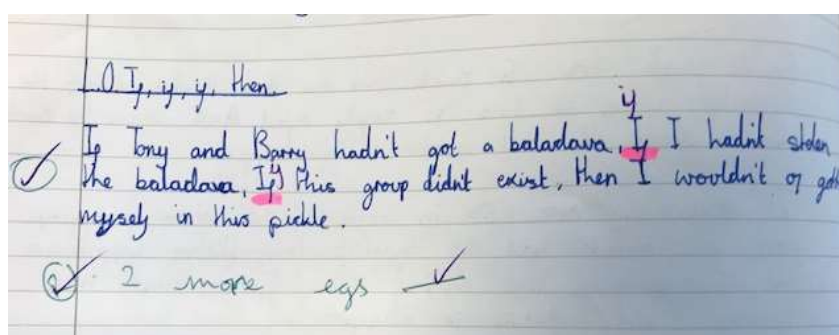 L.O If, if, if, then.
if
If Tony and Barry hadn't got a baladava, If I hadn't stolen
the baladava, If this group didn't exist, then I wouldn't of
myself in this pickle.
2 more egs